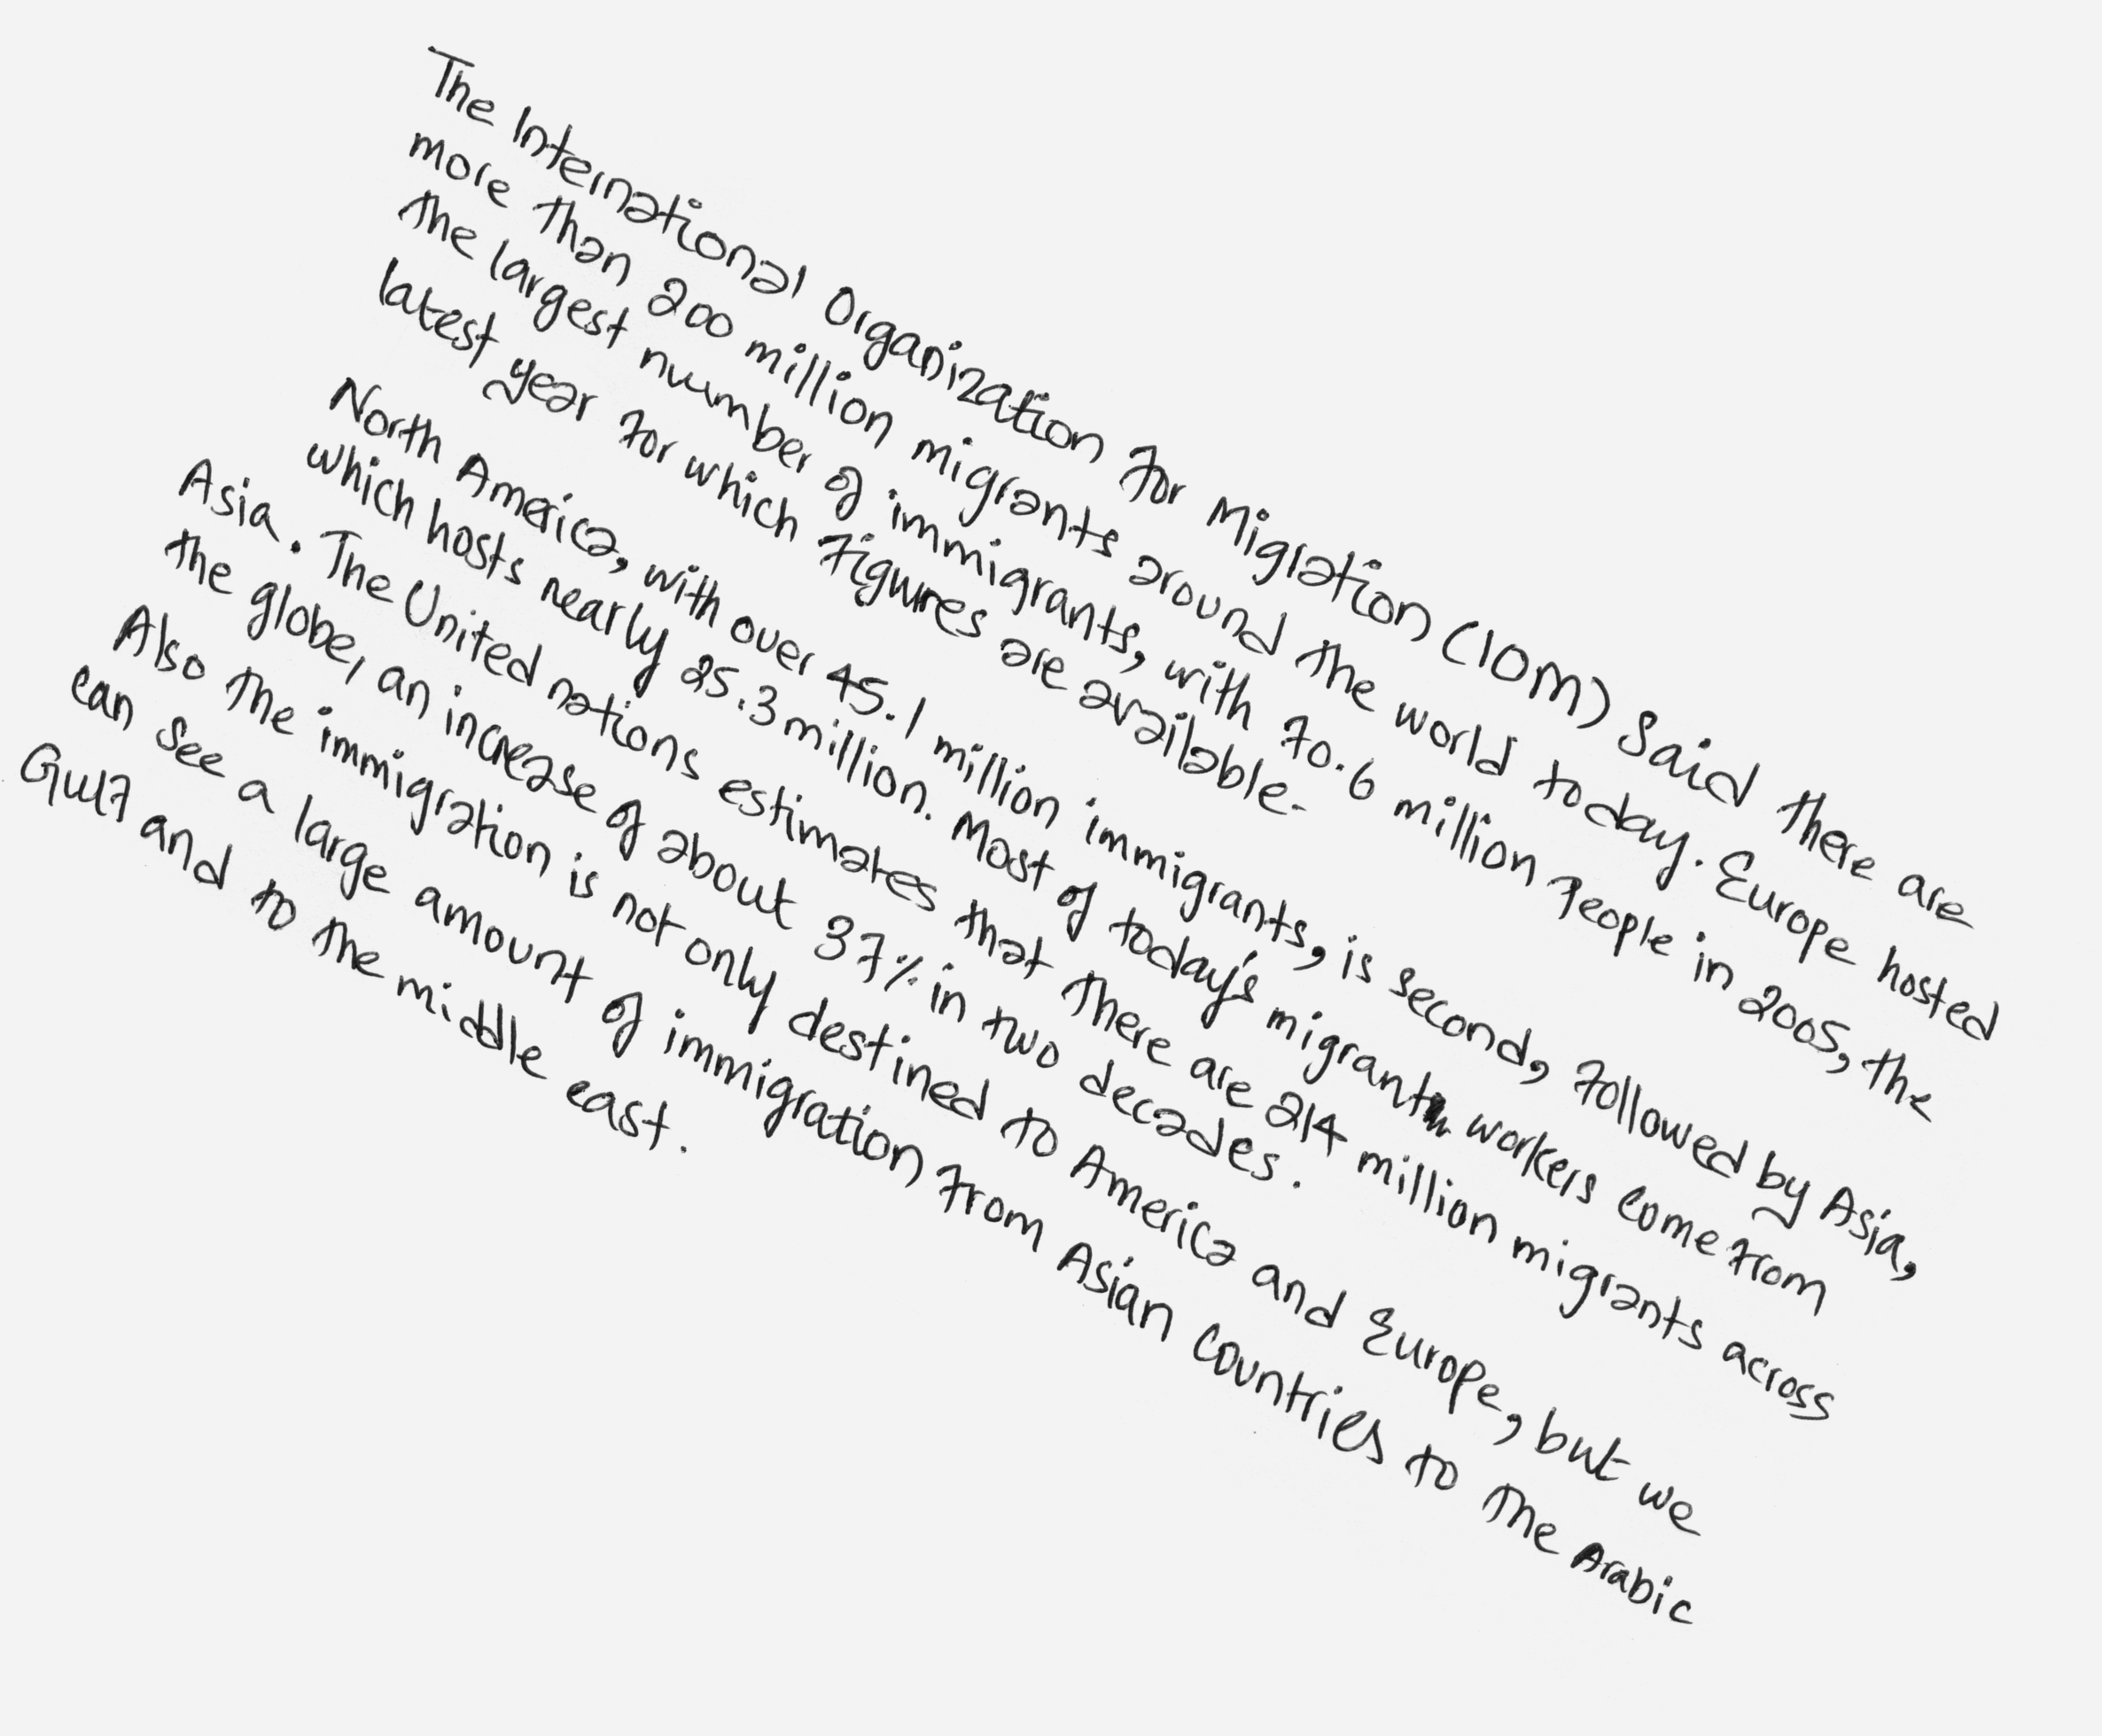 The International Organization for Migration (IOM) said there are
more than 200 million migrants around the world today. Europe hosted
the largest number of immigrants, with 70.6 million people in 2005, the
latest year for which figures are available.
North America, with over 45.1 million immigrants, is second, followed by Asia,
which hosts nearly 25.3 million. Most of today's migrant workers come from
Asia. The United nations estimates that there are 214 million migrants across
the globe, an increase of about 37% in two decades.
Also the immigration is not only destined to America and Europe, but we
can see a large amount of immigration from Asian countries to the Arabic
Gulf and to the middle east.